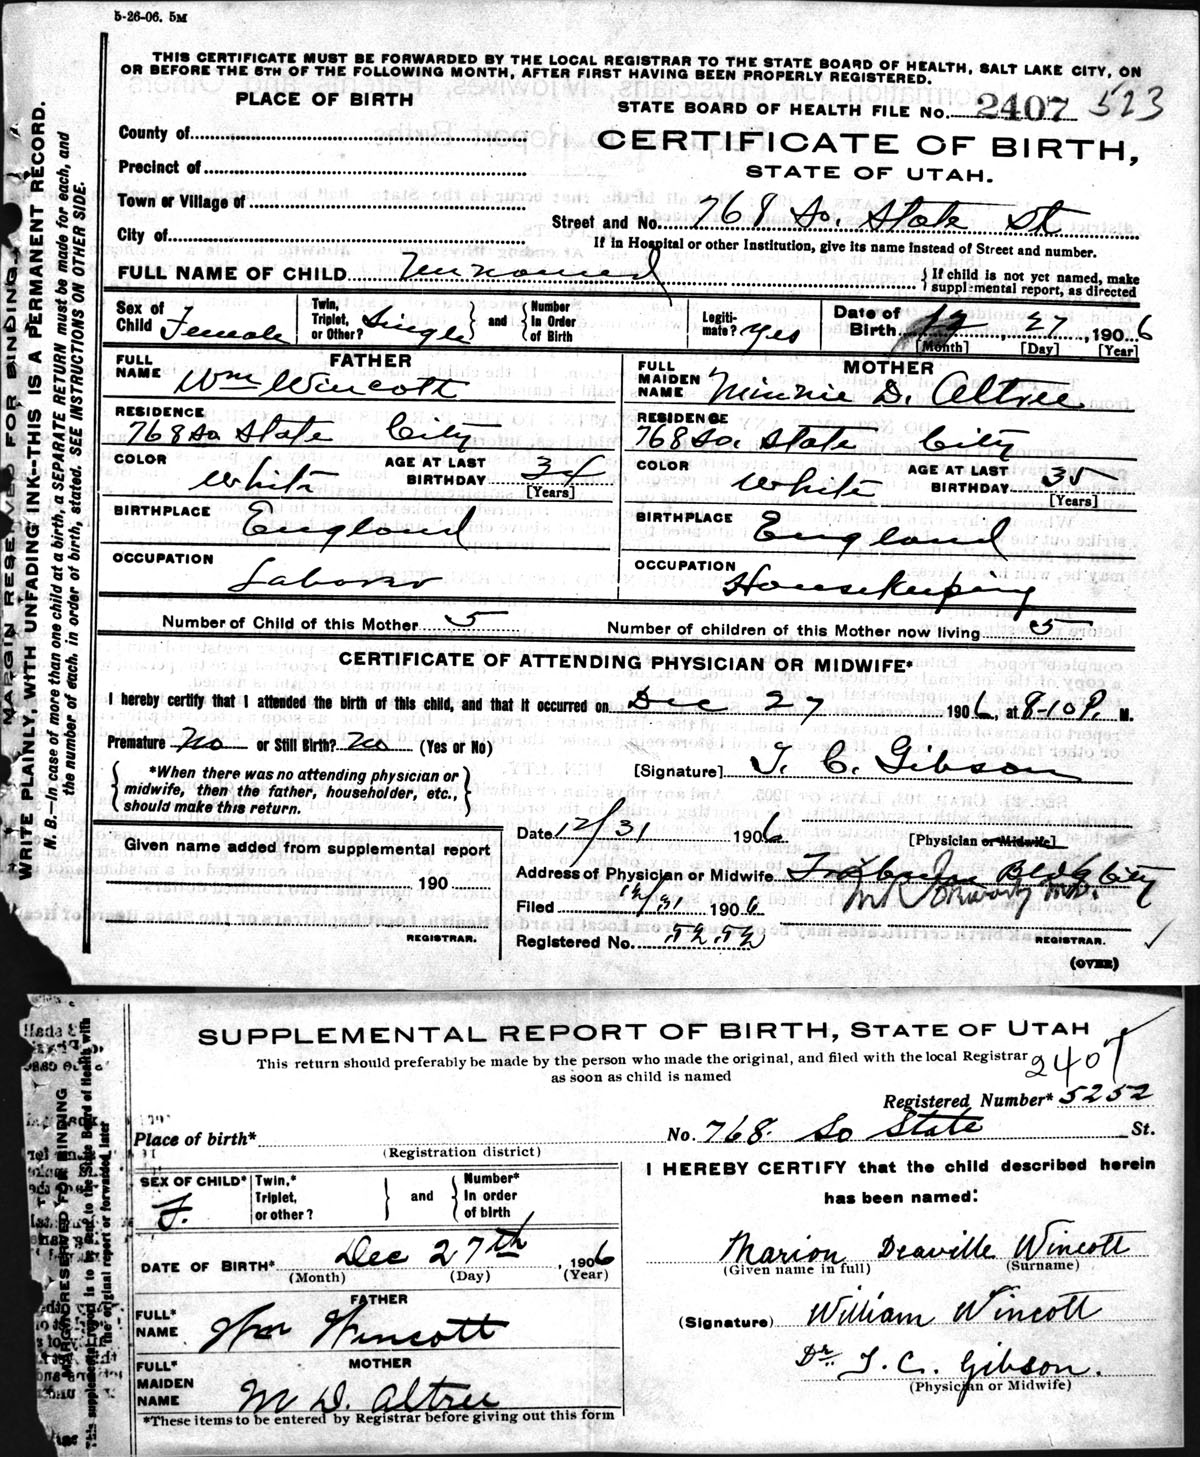 5-26-06. 5M
THIS CERTIFICATE MUST BE FORWARDED BY THE LOCAL REGISTRAR TO THE STATE BOARD OF HEALTH, SALT LAKE CITY, ON
OR BEFORE THE 5TH OF THE FOLLOWING MONTH, AFTER FIRST HAVING BEEN PROPERLY REGISTERED.
PLACE OF BIRTH
STATE BOARD OF HEALTH FILE No. 2407 523
County of
CERTIFICATE OF BIRTH,
Precinct of
STATE OF UTAH.
Town or Village of
Street and No. 768 So. State St
City of
If in Hospital or other Institution, give its name instead of Street and number.
FULL NAME OF CHILD Unnamed
{ If child is not yet named, make
supplemental report, as directed
Sex of Child Female
Twin, Triplet, or Other? Single } and { Number In Order of Birth
Legiti-mate? Yes
Date of Birth 12, 27, 1906
[Month] [Day] [Year]
FATHER
FULL NAME Wm Wincott
MOTHER
FULL MAIDEN NAME Minnie D. Altree
RESIDENCE 768 So State City
RESIDENCE 768 So. State City
COLOR White AGE AT LAST BIRTHDAY 34 [Years]
COLOR White AGE AT LAST BIRTHDAY 35 [Years]
BIRTHPLACE England
BIRTHPLACE England
OCCUPATION Laborer
OCCUPATION Housekeeping
Number of Child of this Mother 5
Number of children of this Mother now living 5
CERTIFICATE OF ATTENDING PHYSICIAN OR MIDWIFE*
I hereby certify that I attended the birth of this child, and that it occurred on Dec 27 1906, at 8-10 P. M.
Premature No or Still Birth? No (Yes or No)
{ *When there was no attending physician or
midwife, then the father, householder, etc.,
should make this return. }
[Signature] T. C. Gibson
Date 12/31 1906
[Physician or Midwife]
Given name added from supplemental report
190
REGISTRAR.
Address of Physician or Midwife Bldg City
Filed 12/31 1906
Registered No. 5252
REGISTRAR.
(OVER)
MARGIN RESERVED FOR BINDING
WRITE PLAINLY, WITH UNFADING INK--THIS IS A PERMANENT RECORD.
N. B.—In case of more than one child at a birth, a SEPARATE RETURN must be made for each, and
the number of each, in order of birth, stated. SEE INSTRUCTIONS ON OTHER SIDE.
SUPPLEMENTAL REPORT OF BIRTH, STATE OF UTAH
This return should preferably be made by the person who made the original, and filed with the local Registrar
as soon as child is named
2407
Registered Number* 5252
Place of birth*
(Registration district)
No. 768 So State St.
SEX OF CHILD* F.
Twin,* Triplet, or other? } and { Number* In order of birth
I HEREBY CERTIFY that the child described herein
has been named:
DATE OF BIRTH* Dec 27th, 1906
(Month) (Day) (Year)
Marion Deaville Wincott
(Given name in full) (Surname)
FATHER
FULL* NAME Wm Wincott
(Signature) William Wincott
MOTHER
FULL* MAIDEN NAME M D. Altree
Dr. T. C. Gibson.
(Physician or Midwife)
*These items to be entered by Registrar before giving out this form
MARGIN RESERVED FOR BINDING
This supplemental report is to be sent to the State Board of Health with
the original report or forwarded later